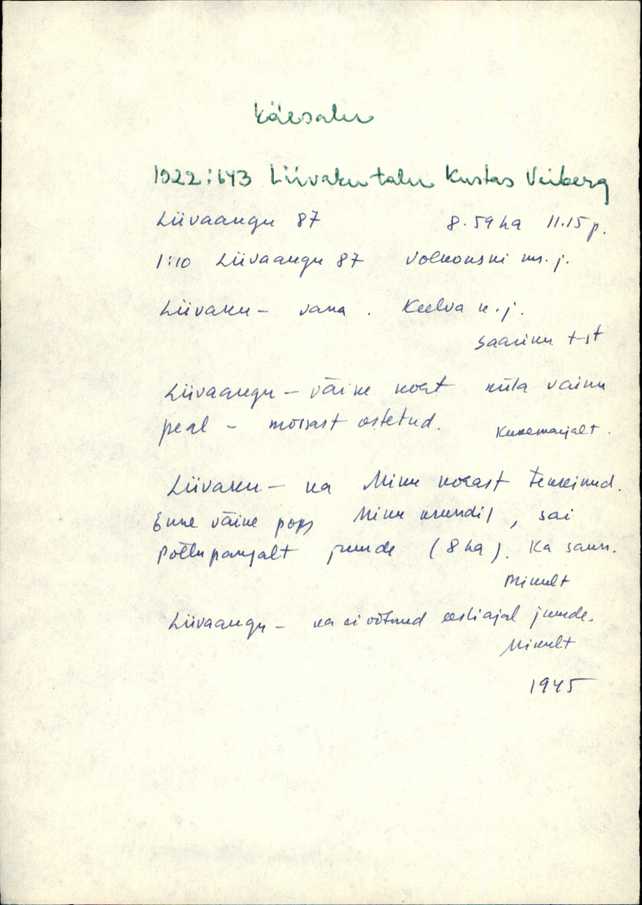 Käesalu
1922:643 Liivaku talu Kustas Veiberg
Liivaangu 87 8.59 ha 11.15 p.
1:10 Liivaangu 87 Volkonski ms. j.
Liivaku – vana. Keelva k. j.
Saariku t-st
Liivaangu – väike koht küla vainu
peal – mõisast ostetud. Kukemarjalt.
Liivaku – ka Miku kohast tekkinud.
Enne väike pops Miku krundil, sai
Põllupangalt juurde (8 ha). Ka saun.
Mikult
Liivaangu – ka ei võtnud eesti ajal juurde.
Mikult
1945